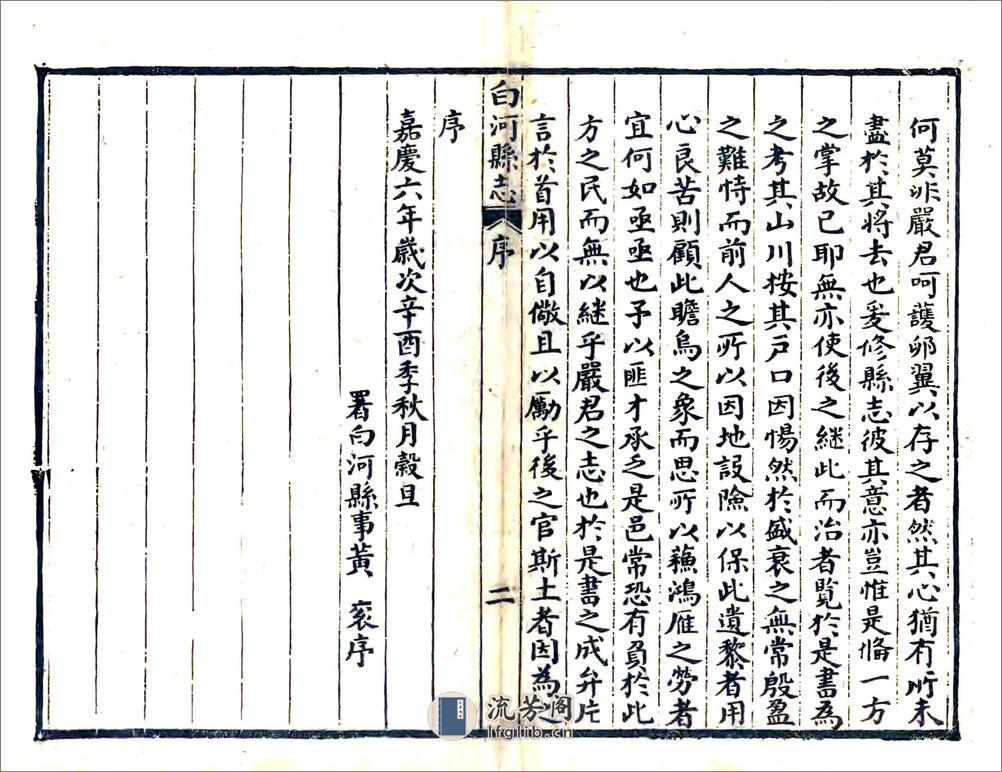 何莫非嚴君呵護卵翼以存之者然其心猶有所未
盡於其將去也爰修縣志彼其意亦豈惟是備一方
之掌故已耶無亦使後之継此而治者覽於是書為
之考其山川按其戶口因惕然於盛衰之無常殷盈
之難恃而前人之所以因地設險以保此遺黎者用
心良苦則顧此瞻烏之象而思所以蘓鴻雁之勞者
宜何如亟亟也予以匪才承乏是邑常恐有負於此
方之民而無以継乎嚴君之志也於是書之成弁片
言於首用以自儆且以勵乎後之官斯土者因為之
白河縣志 序 二
序
嘉慶六年歲次辛酉季秋月穀旦
署白河縣事黃 袞序
流芳阁
lfglib.cn